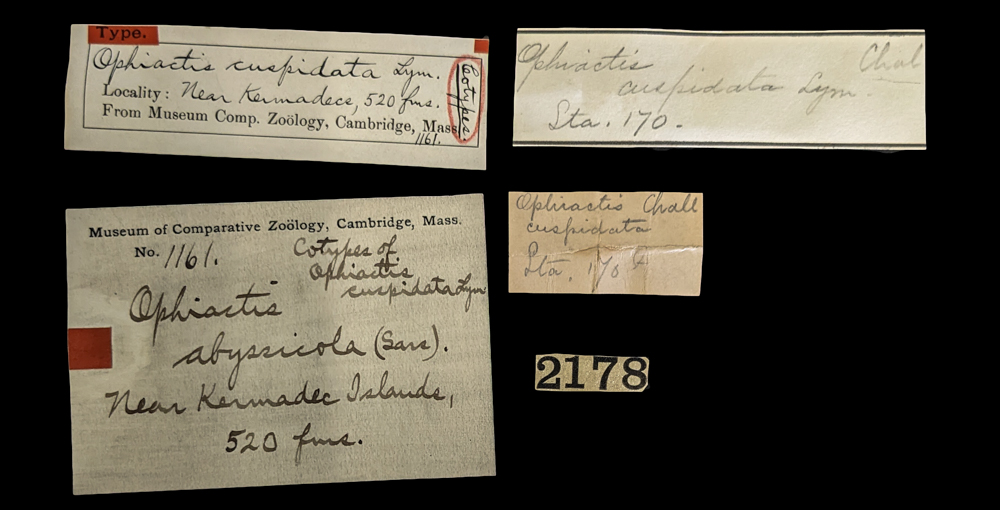 Type.
Ophiactis cuspidata Lym.
Locality: Near Kermadecs, 520 fms.
From Museum Comp. Zoölogy, Cambridge, Mass.
1161.
Cotypes.
Ophiactis Chal
cuspidata Lym.
Sta. 170.
Museum of Comparative Zoölogy, Cambridge, Mass.
No. 1161.
Cotypes of
Ophiactis
cuspidata Lym
Ophiactis
abyssicola (Sars).
Near Kermadec Islands,
520 fms.
Ophiactis Chall
cuspidata
Sta. 170
2178